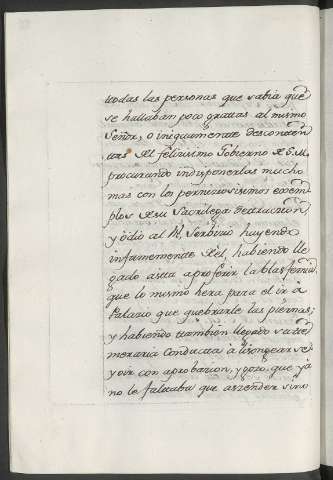 todas las personas que sabia que
se hallaban poco gratas al mismo
Señor, o iniquamente desconten
tas del felicisimo Gobierno de S. M.
procurando indisponerlas mucho
mas con los perniciosisimos exem
plos de su Sacrilega detraccion
y odio al Rl. Serbicio huyendo
infamemente de el, habiendo lle
gado asta a proferir la blasfemia
que lo mismo hera para el ir à
Palacio que quebrarle las piernas;
y habiendo tambien llegado su te
meraria conducta à lisongearse
y oir con aprobacion, y gozo, que ya
no le faltaba que ascender sino